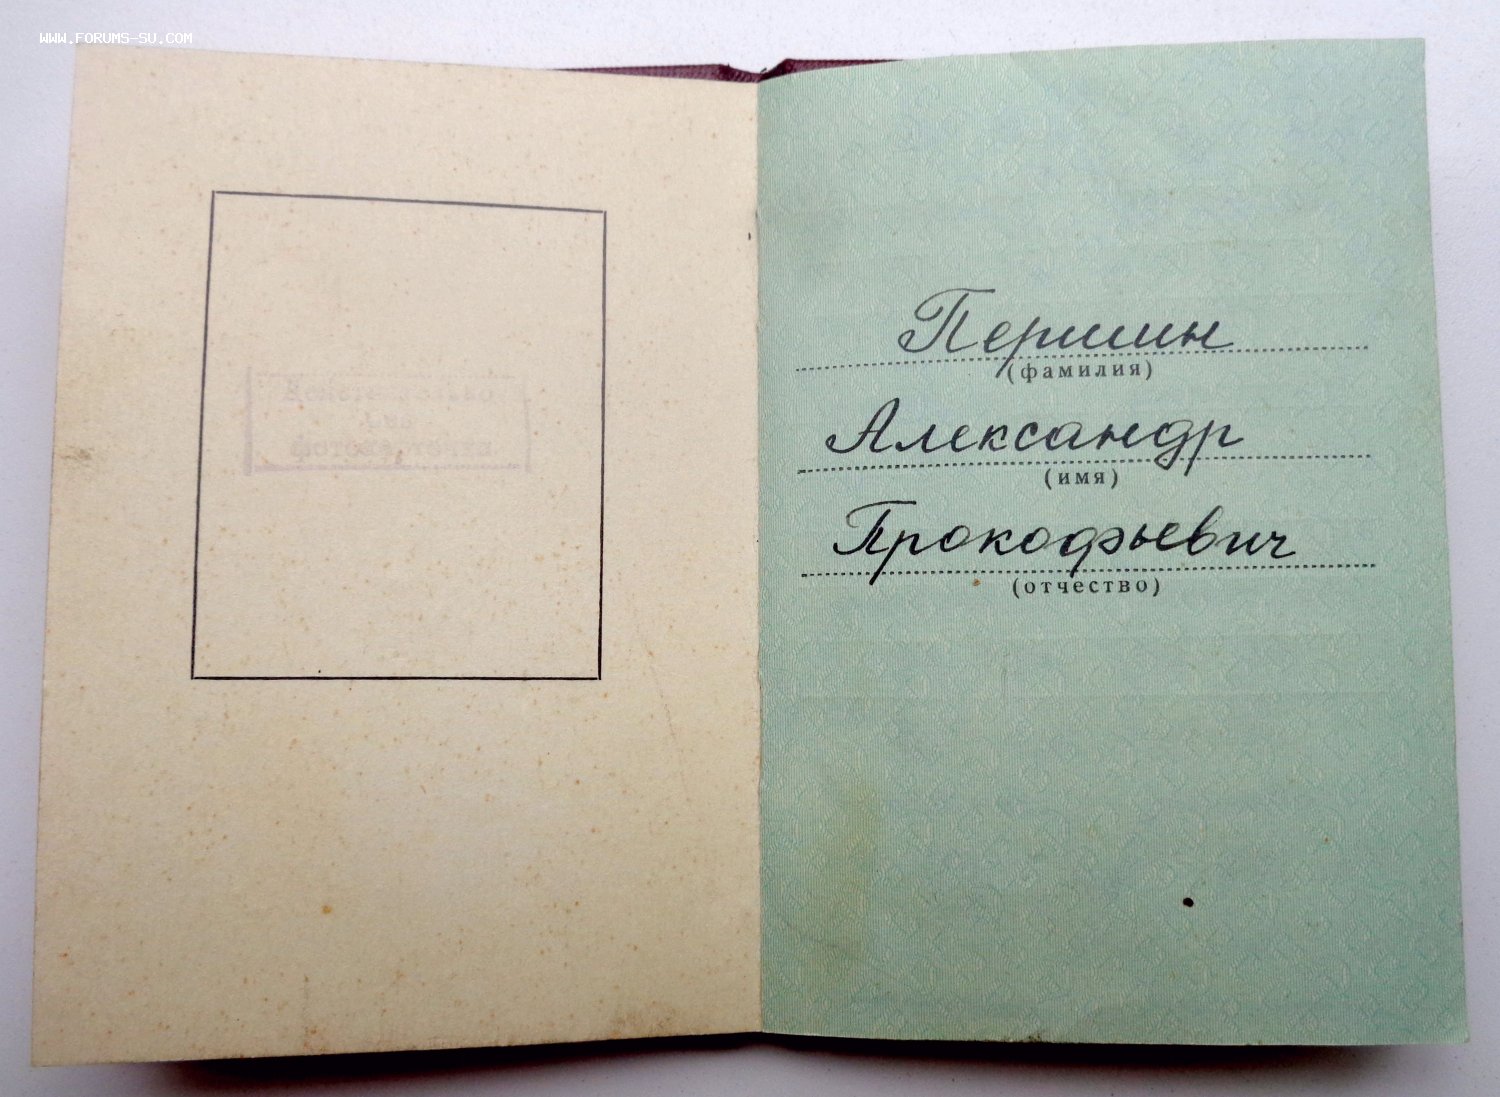 WWW.FORUMS-SU.COM
Действительно
без
фотокарточки
Першин
(фамилия)
Александр
(имя)
Прокофьевич
(отчество)